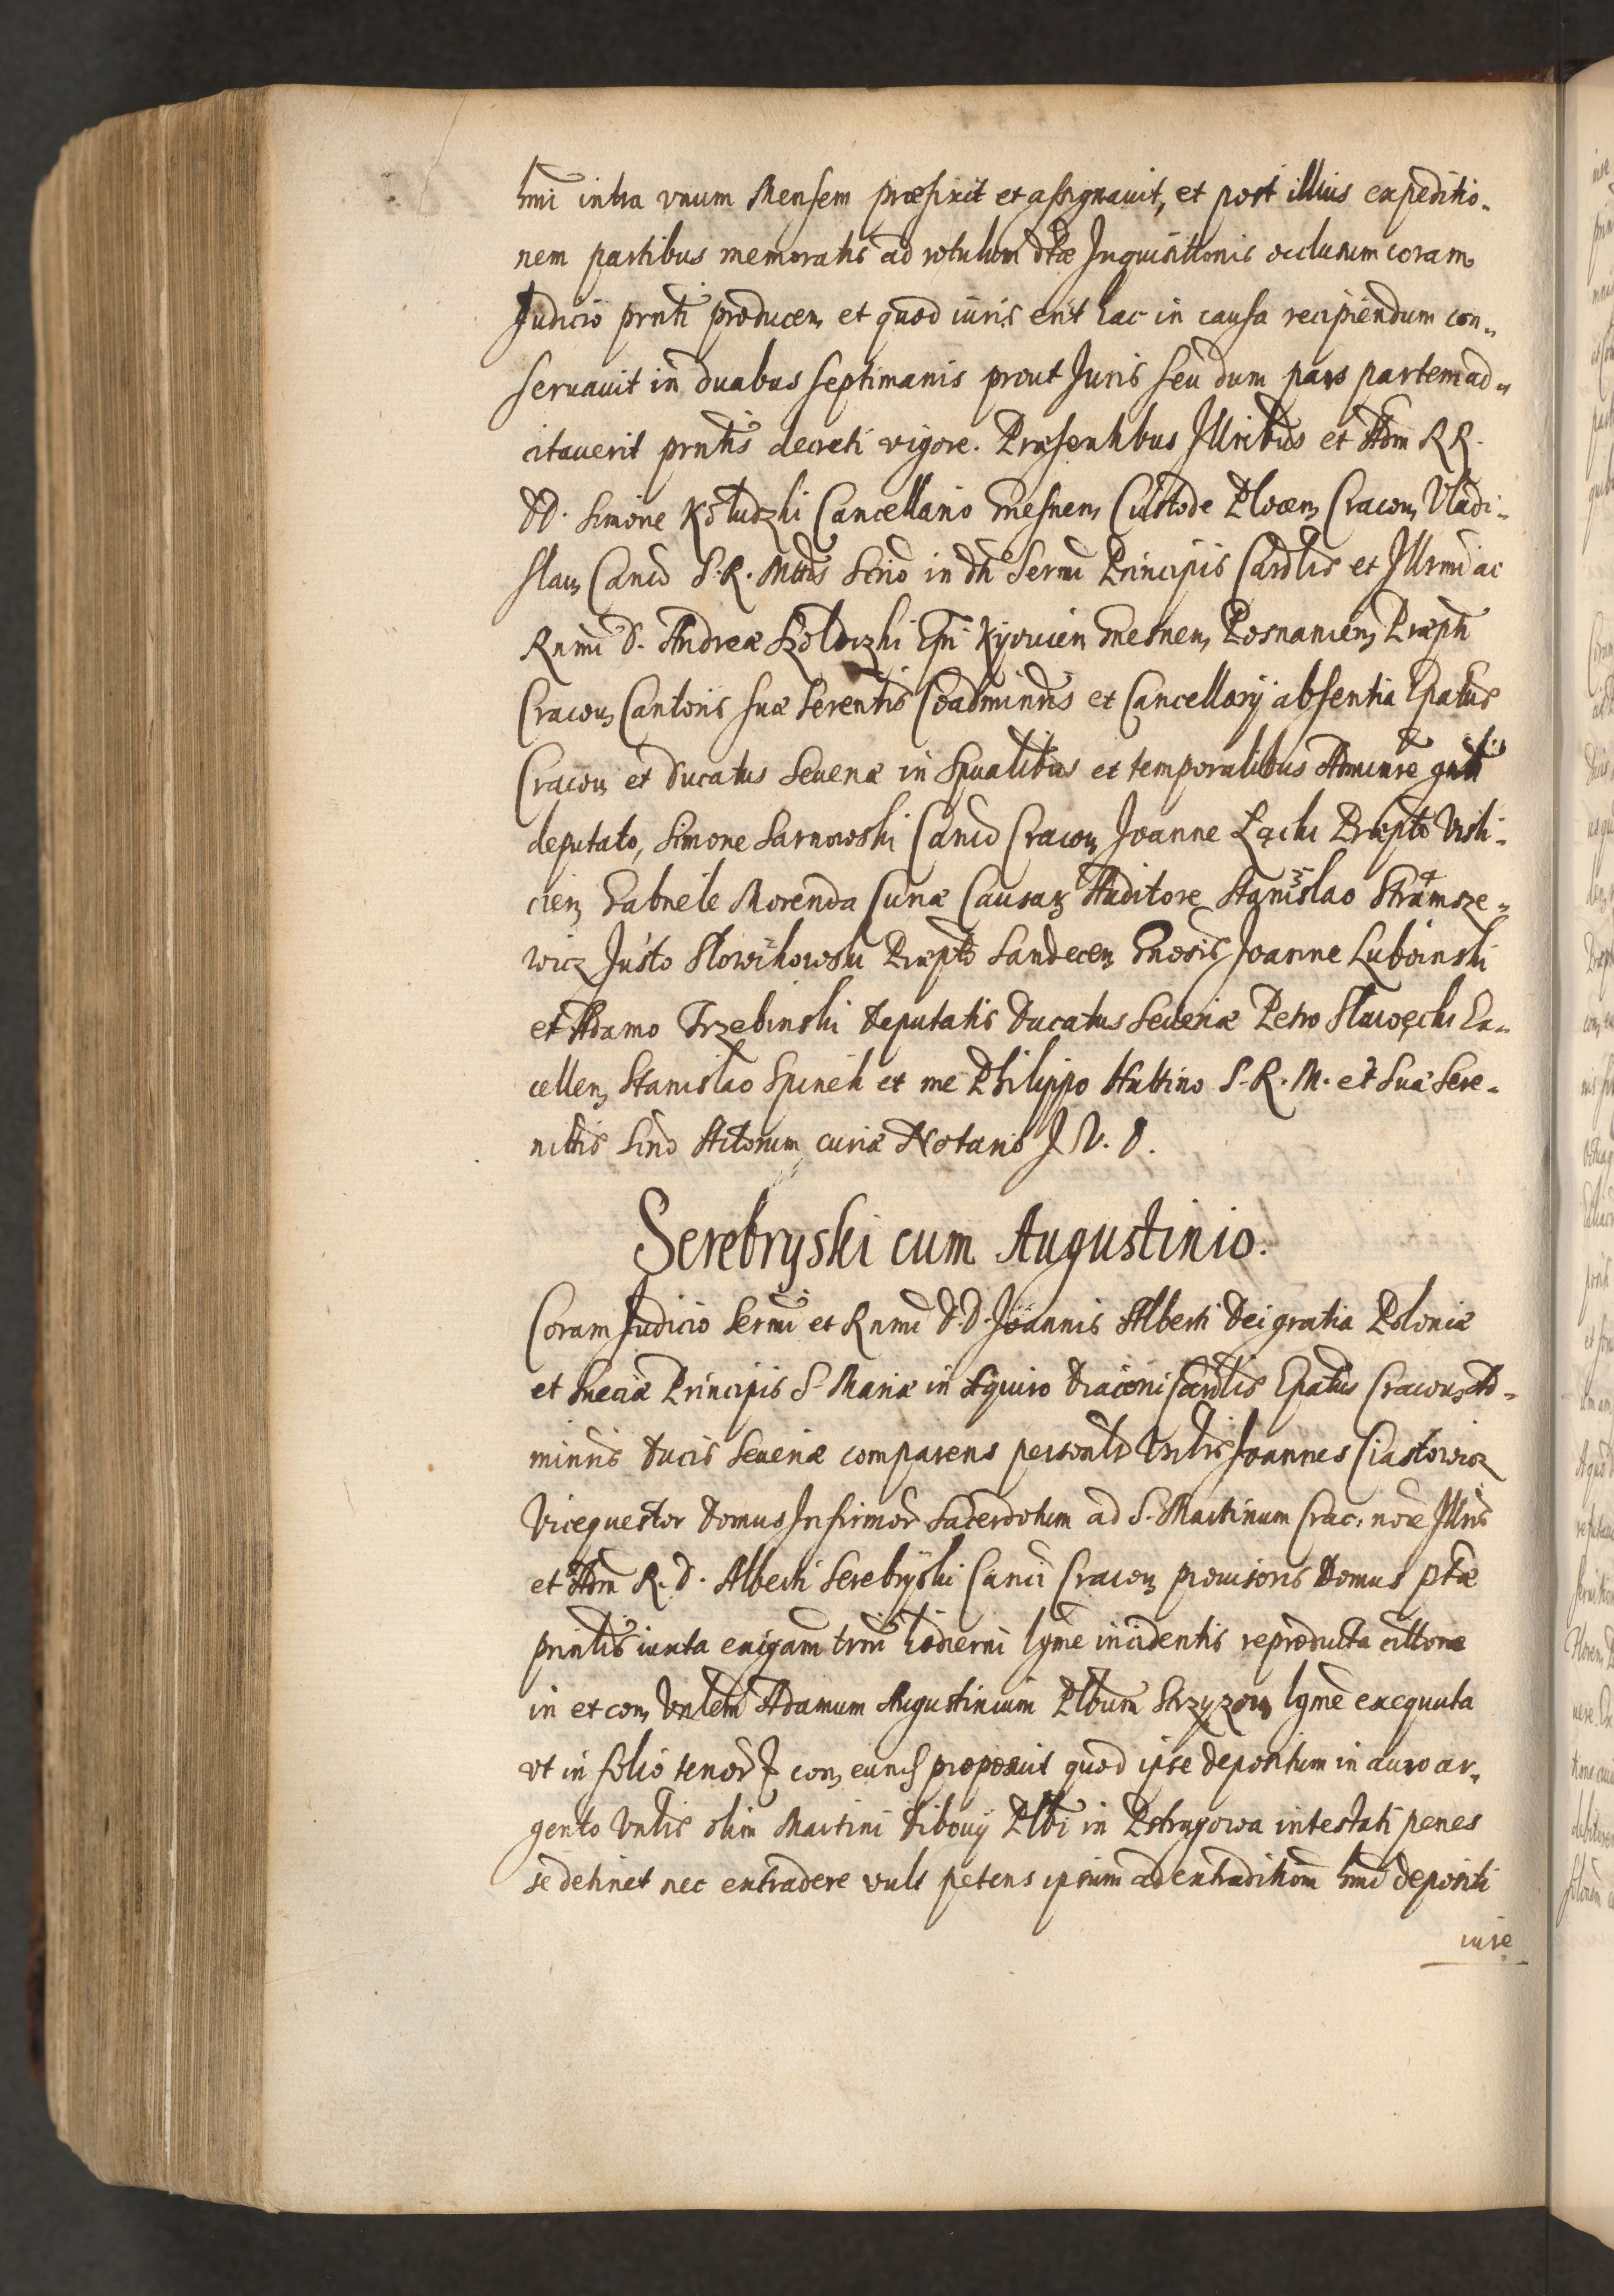 hmi intra vnum Mensem præfixit et assignauit, et post illius expeditio-
nem partibus memoratis ad rotulum dtæ Inquisittonis occlusum coram
Judicio prnti producen et quod iuris erit hac in causa recipiendum con-
seruauit in duabus septimanis prout Juris seu dum pars partem ad-
citauerit prntis decreti vigore. Præsentibus Illribus et Adm RR.
DD. Simone Kołudzki Cancellario Gnesnen, Custode Plocen, Cracou, Vladi-
slau, Canco S.R. Mttis Scrio in dh Sermi Principis Cardlis et Illrmi ac
Rnmi D. Andreæ Szołdrzki Epi Kyouien Gnesnen, Posnanien, Præpti
Cracou, Cantoris suæ Serentis Coadmintris et Cancellarij absentia Epatus
Cracou et Ducatus Seueriæ in Spualibus et temporalibus Admintre gnli
deputato, Simone Sarnowski Canco Cracou, Joanne Łącki Præpto Visli-
cien, Gabriele Morenda Curiæ Causar Auditore Stanislao Stramsze-
wicz Justo Słowikowski Præpto Sandecen Gnosis Joanne Luboinski
et Adamo Trzebinski Deputatis Ducatus Seueriæ Petro Sławęcki Ca-
cellen, Stanislao Spinek et me Philippo Huttino S. R. M. et Suæ Sere-
nittis Sino Actorum curiæ Notario J. V. D.
Serebryski cum Augustinio.
Coram Judicio Sermi et Rnmi D.D. Joannis Alberti Dei gratia Poloniæ
et Sueciæ Principis S. Mariæ in Aquiro Diaconi Cardlis Epatus Cracou, Ad-
mintris Ducis Seueriæ comparens personlr Vnlis Joannes Ciastowicz
Vicequestor Domus Infirmor Sacerdotum ad S. Martinum Crac. noie Illris
et Adm R. D. Alberti Serebryski Canci Cracou prouisoris Domus ptæ
prinlis iuxta exigam trmi hodierni lgme incidentis reproducta cittone
in et con, Vnlem Adamum Augustinium Plbum Strzyzou lgme exequuta
vt in folio tenor con, eund proposuit quod ipse depositum in auro ar-
gento Vnlis olim Martini Dibouij Plbi in Pstragowa intestati penes
se detinet nec extradere vult petens ipsum ad extraditiom hmi depositi
iure